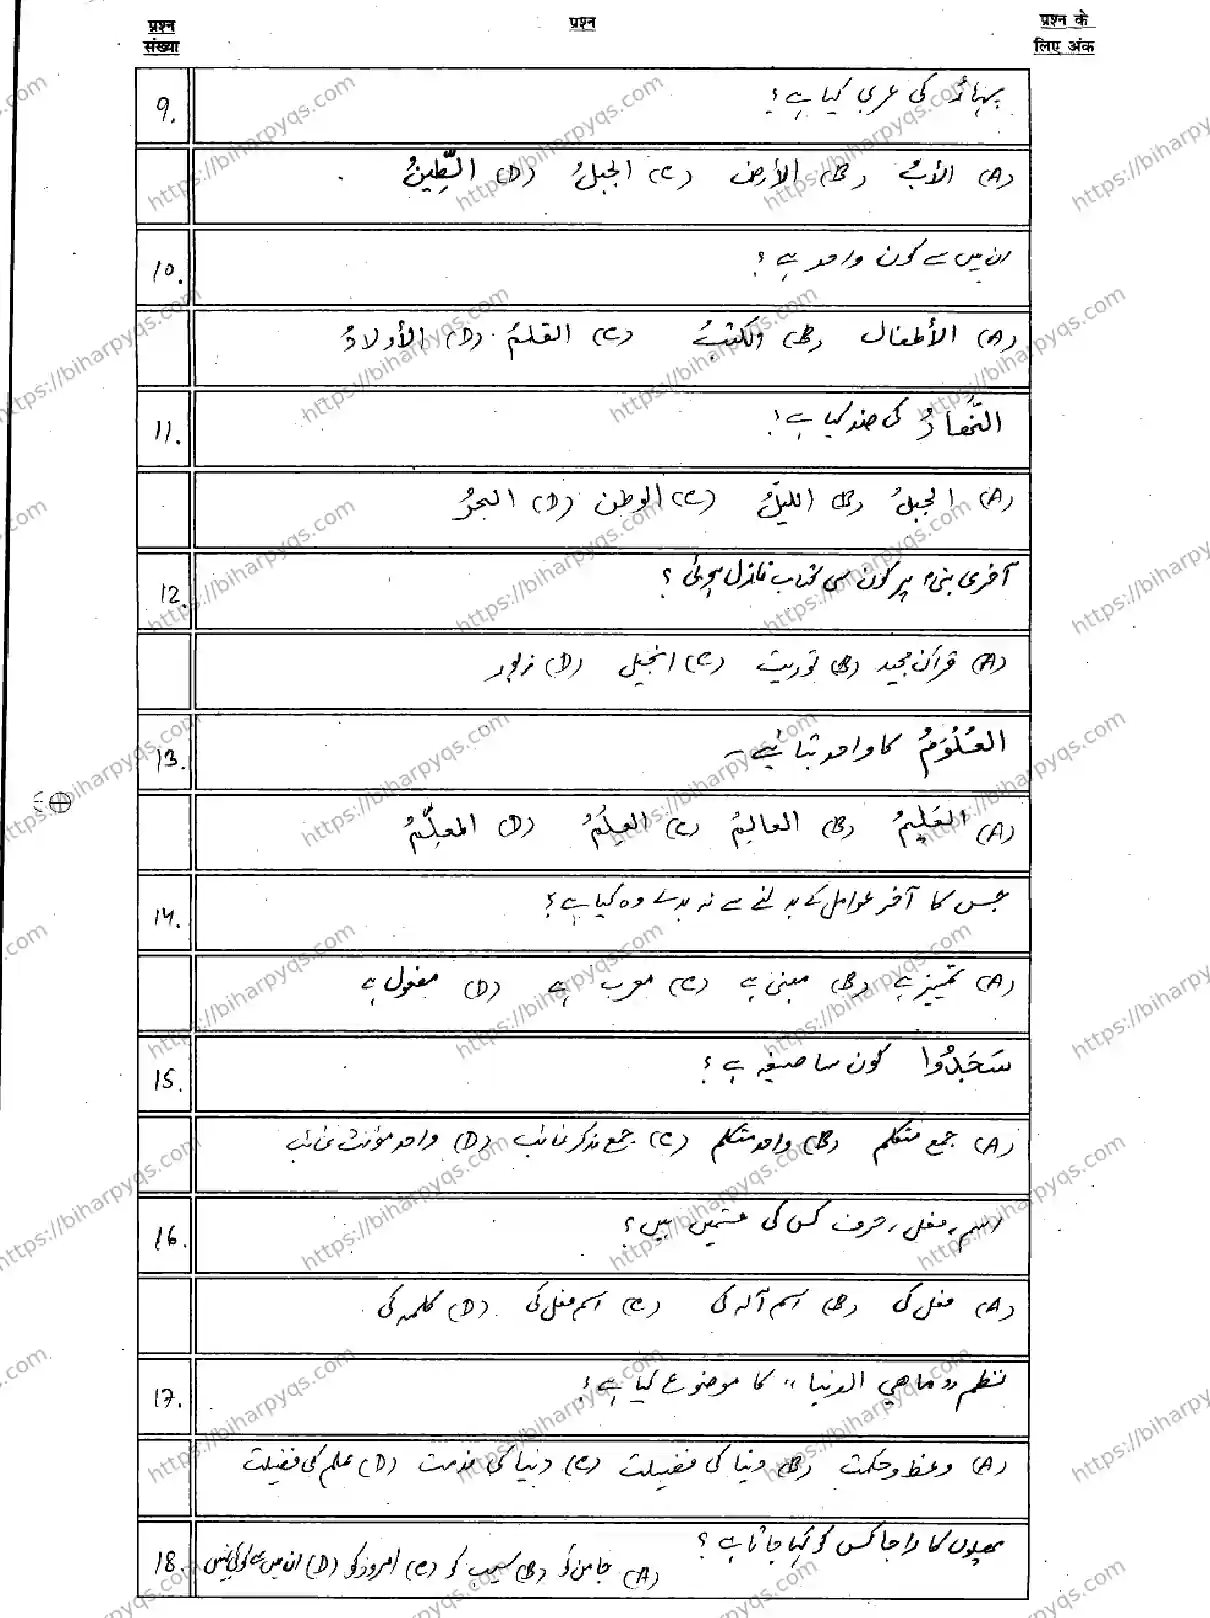 प्रश्न संख्या
प्रश्न
प्रश्न के लिए अंक
9. پہاڑ کی عربی کیا ہے؟
(A) الأبُ (B) الأرض (C) الجبلُ (D) الطِّينُ
10. ان میں سے کون واحد ہے؟
(A) الأطفال (B) الكتبُ (C) القلمُ (D) الأولادُ
11. النَّھارُ کی ضد کیا ہے؟
(A) الجبلُ (B) الليلُ (C) الوطن (D) البحرُ
12. آخری نبیؐ پر کون سی کتاب نازل ہوئی؟
(A) قرآن مجید (B) توریت (C) انجیل (D) زبور
13. العُلُوْمُ کا واحد بتائیے۔
(A) العَلِيمُ (B) العالِمُ (C) العِلْمُ (D) المعلِّمُ
14. جس کا آخر عوامل کے بدلنے سے نہ بدلے وہ کیا ہے؟
(A) تمییز ہے (B) مبنی ہے (C) معرب ہے (D) مفعول ہے
15. سَجَدُوا کون سا صیغہ ہے؟
(A) جمع متکلم (B) واحد متکلم (C) جمع مذکر غائب (D) واحد مؤنث غائب
16. اسم، فعل، حرف کس کی قسمیں ہیں؟
(A) فعل کی (B) اسم آلہ کی (C) اسم فعل کی (D) کلمہ کی
17. نظم "ماھی الدنیا" کا موضوع کیا ہے؟
(A) وعظ و حکمت (B) دنیا کی فضیلت (C) دنیا کی مذمت (D) علم کی فضیلت
18. پھلوں کا راجا کس کو کہا جاتا ہے؟
(A) جامن کو (B) سیب کو (C) امرود کو (D) ان میں سے کوئی نہیں
https://biharpyqs.com